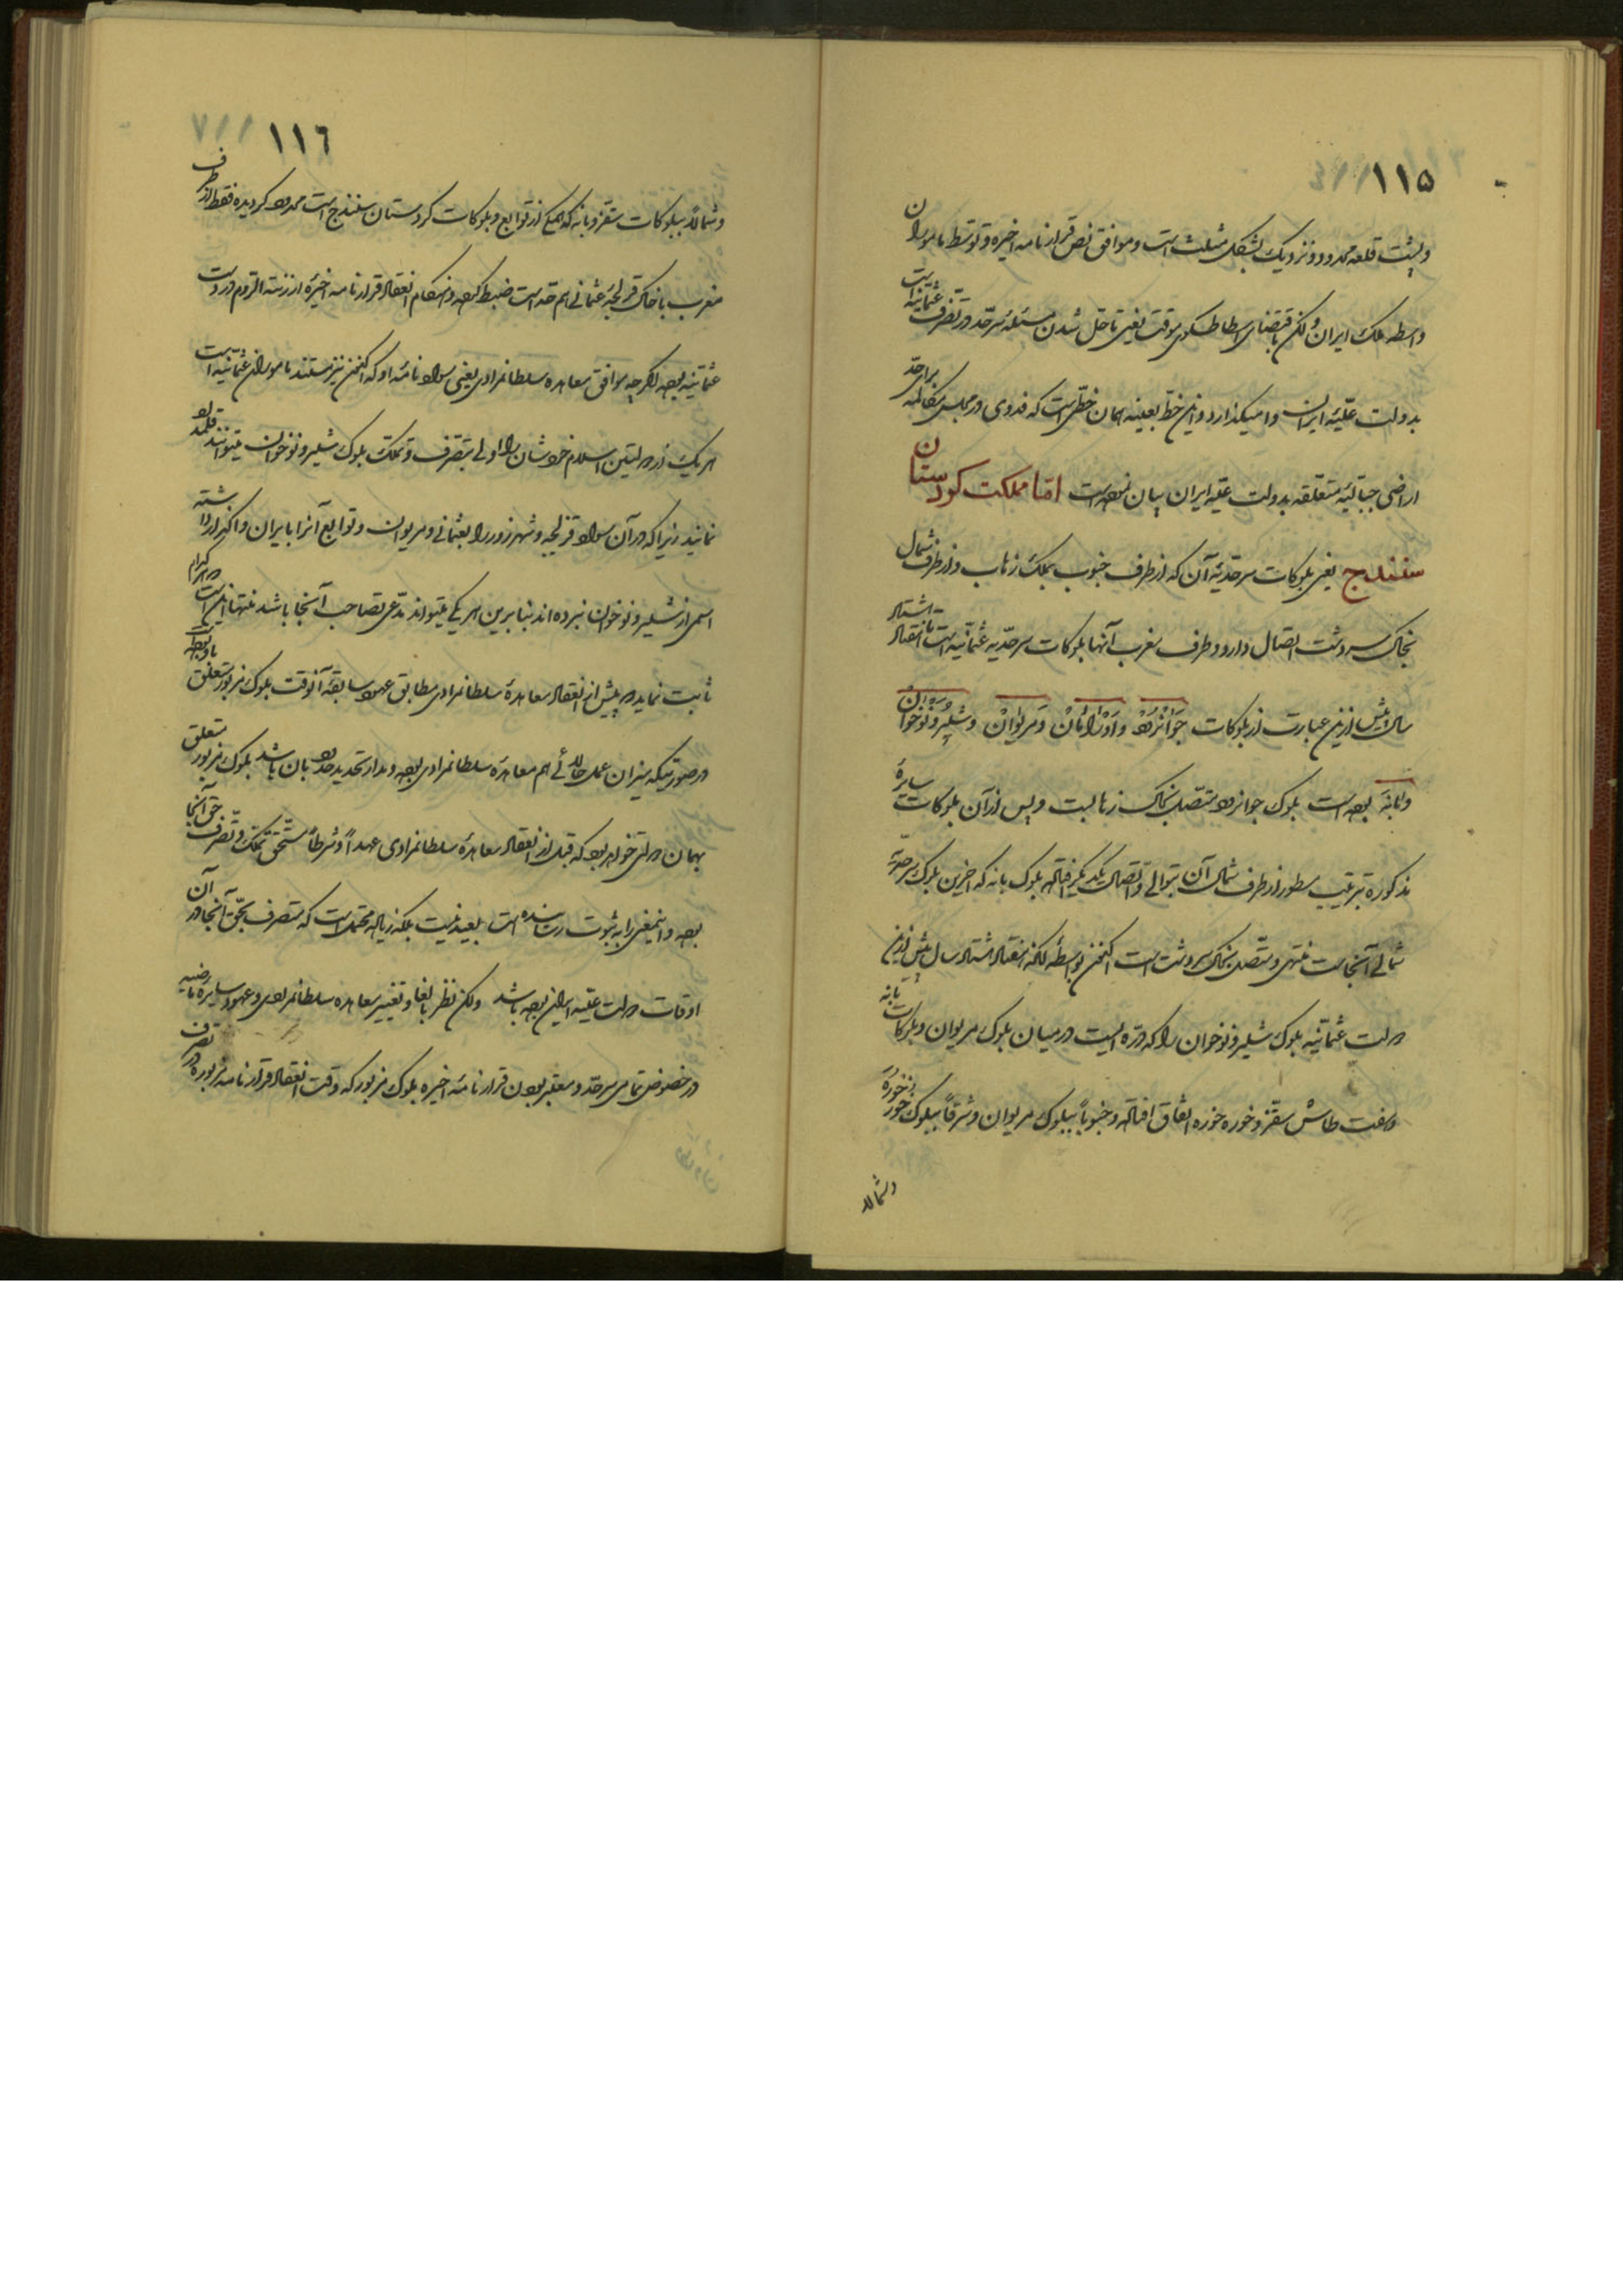 ۱۱۵
و پشت قلعه محدود و نزدیک بشکل مثلث است و موافق نص قرارنامه اخیره و توسط مامورین
واسطه ملک ایران ولکن باقتضای اسطاطسکوی موقت یعنی تا حل شدن مسئله سرحد در تصرف عثمانیه است
بدولت علیّه ایران وامیگذارد و این خط بعینه همان خطی است که فدوی در مجلس مکالمه برای حدّ
اراضی جبالیّه متعلقه بدولت علیّه ایران بیان نموده است امّا مملکت کوردستان
سنندج یعنی بلوکات سرحدّیّه آن که از طرف جنوب بملک زهاب و از طرف شمال
بخاک سردشت اتصال دارد و طرف مغرب آنها بلوکات سرحدّیه عثمانیه است تا هفتاد هشتاد
سال پیش ازین عبارت از بلوکات جوانرود و اورامان و مریوان و شلیر و نوخوان
و بانه بوده است بلوک جوانرود متصل بخاک زهابست و پس از آن بلوکات سایرهٔ
مذکوره بترتیب مسطور از طرف شمال آن بتوالی و اتصال یکدیگر افتاده بلوک بانه که آخرین بلوک سرحدّیه
شمالی آنجاست منتهی و متصل بخاک سردشت است اکنون بواسطه آنکه هفتاد هشتاد سال پیش ازین
دولت عثمانیه بلوک شلیر و نوخوان را که دره ایست در میان بلوک مریوان و بلوکات بانه
و هفت طاش سقز و خوره خوره اتفاق افتاده و جنوباً ببلوک مریوان و شرقاً ببلوک خورخوره
و شمالاً
۱۱٦
و شمالاً ببلوکات سقز و بانه که جمیع از توابع و بلوکات کردستان سنندج است محدود گردیده فقط از طرف
مغرب با خاک قزلجه عثمانی هم حدّ است ضبط کرده و هنگام انعقاد قرارنامه اخیرهٔ ارزنة الروم در دست
عثمانیه بوده اگرچه موافق معاهده سلطانمرادی یعنی سواد نامهٔ او که اکنون نیز مستند مامورین عثمانیه است
هر یک از دولتین اسلام خودشان را اولی بتصرف و تملک بلوک شلیر و نوخوان میتوانند قلمداد
نمایند زیرا که در آن سواد قزلجه و شهرزور را بعثمانی و مریوان و توابع آنرا بایران واگذار داشته
اسمی از شلیر و نوخوان نبرده اند بنابرین هر یکی میتواند مدّعی تصاحب آنجا باشد منتها اینست هر کدام
ثابت نماید در پیش از انعقاد معاهدهٔ سلطانمرادی مطابق عهود سابقه آنوقت بلوک مزبور متعلق باو بوده
در صورتیکه میزان عمل حالیه هم معاهدهٔ سلطانمرادی بوده و مدار تحدید حدود بان باشد بلوک مزبور متعلق
بهمان دولتی خواهد بود که قبل از انعقاد معاهدهٔ سلطانمرادی عهداً و شرطاً مستحق تملک و تصرف حق آنجا
بوده و اینمعنی را به ثبوت رسانیده است بعید نیست بلکه زیاده محتمل است که متصرف بحق آنجا در آن
اوقات دولت علیّه ایران بوده باشد ولکن نظر بالغا و تغییر معاهده سلطانمرادی و عهود سایره ماضیه
در خصوص تمامی سرحدّ و معتبر بودن قرارنامهٔ اخیره بلوک مزبور که وقت انعقاد قرارنامه مزبوره در تصرف